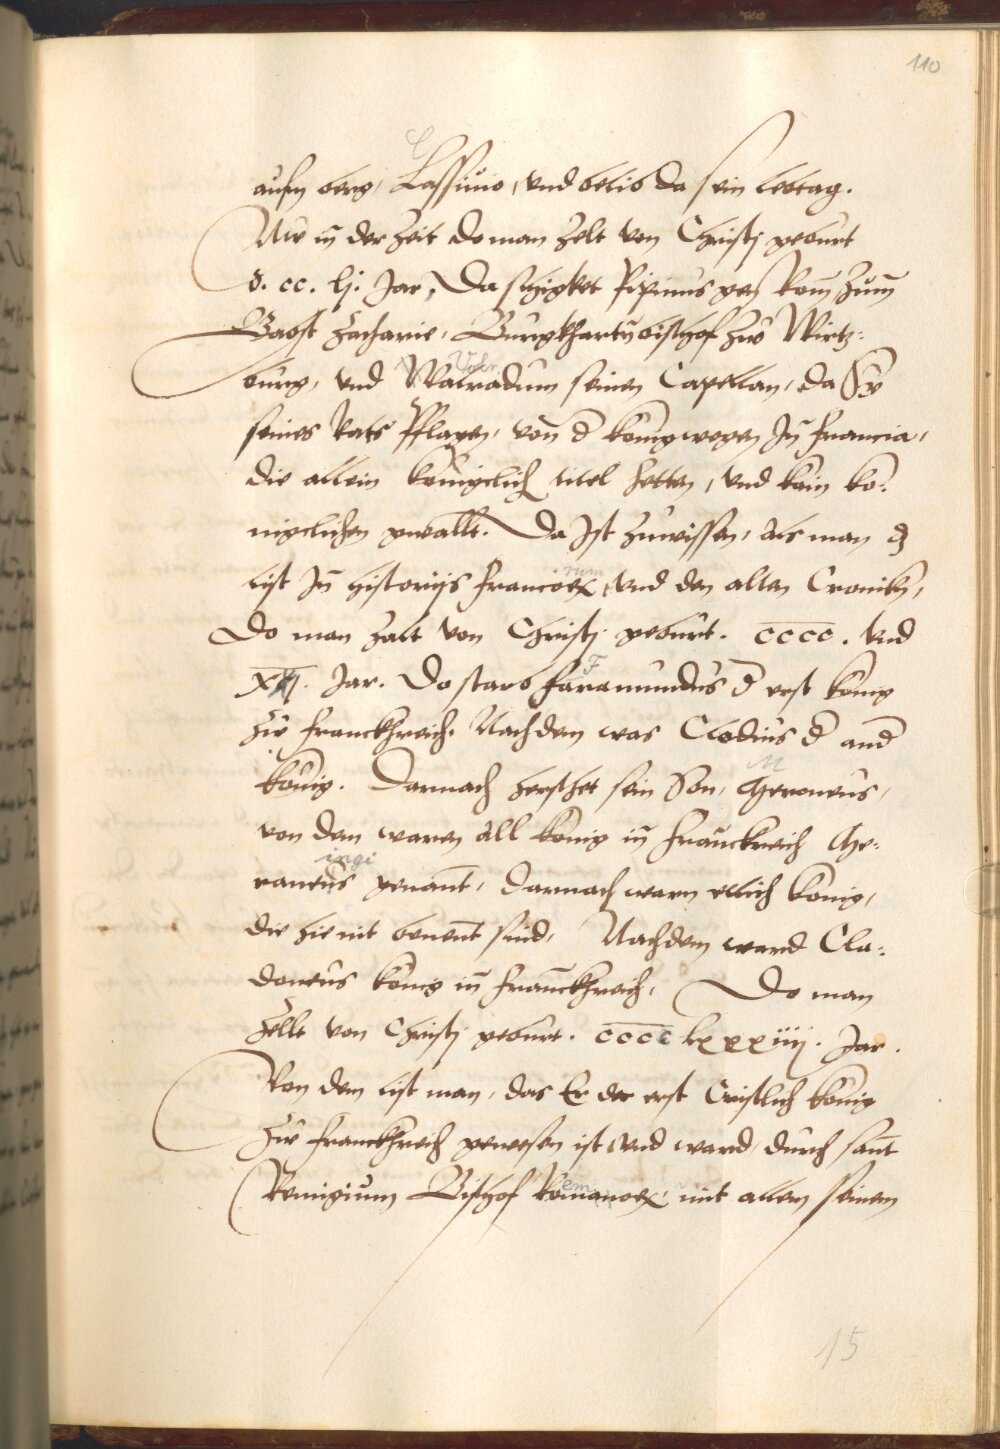 110
aufm berg, Cassinio, vnd belib da sein lebtag.
Nw in der Zeit do man Zelt von Christj geburt
d. cc. lj. Jar, Da schigket Pipinus gen Rom Zum
Babst Zacharie, Burgkhartn bischof Zw Wirtz:
burg, vnd Walradum seinen Capellan, da Sy
seines Rats Pflagen, von d konig wegen In Francia,
die allein koniglich titel hetten, vnd kain ko:
niglichen gwallt. Da Ist Zuwissen, als man
list In historijs Francorum, vnd den alten Cronikn,
Do man Zalt von Christj geburt. cccc. vnd
Jar. Do starb Faramundus d erst konig
Zw Franckhreich. Nachdem was Clodius d and
konig. Darnach herschet sein Son, Meroneus,
von dem waren all konig in Franckreich Me:
raneus genant, Darnach warn etlich konig,
die hie nit benent sind, Nachdem ward Clo:
doneus konig in Franckhreich, Do man
Zellt von Christj geburt. cccc lxxxiiij. Jar.
Von dem list man, das Er der erst Cristlich konig
Zw Franckhreich gewesen ist, vnd ward durch sant
Remigium Bischof Romanorum, mit allem seinem
15